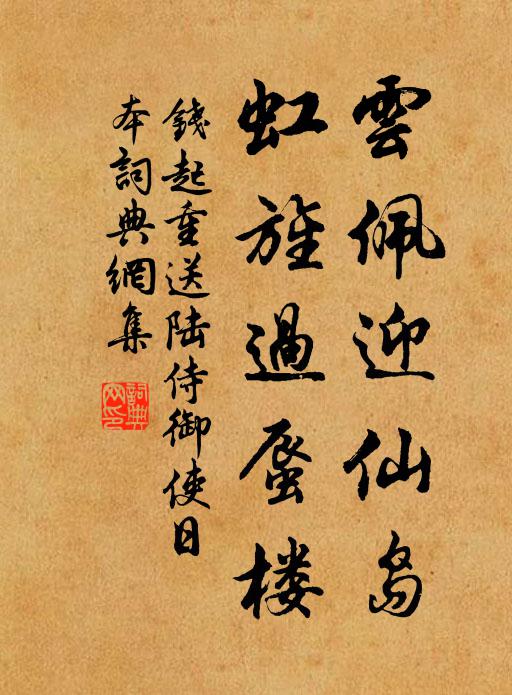 雲佩迎仙島
虹旌過蜃楼
錢起重送陆侍御使日
本詞典網集
詞典
网印